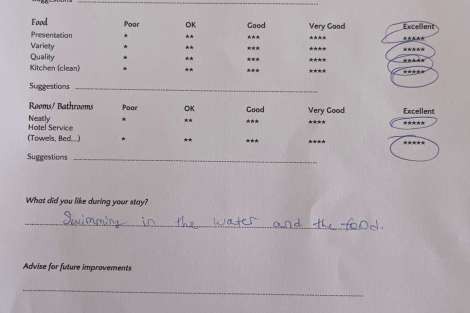 Suggestions
Food Poor OK Good Very Good Excellent
Presentation * ** *** **** *****
Variety * ** *** **** *****
Quality * ** *** **** *****
Kitchen (clean) * ** *** **** *****
Suggestions
Rooms/ Bathrooms Poor OK Good Very Good Excellent
Neatly * ** *** **** *****
Hotel Service
(Towels, Bed...) * ** *** **** *****
Suggestions
What did you like during your stay?
Swimming in the water and the food.
Advise for future improvements